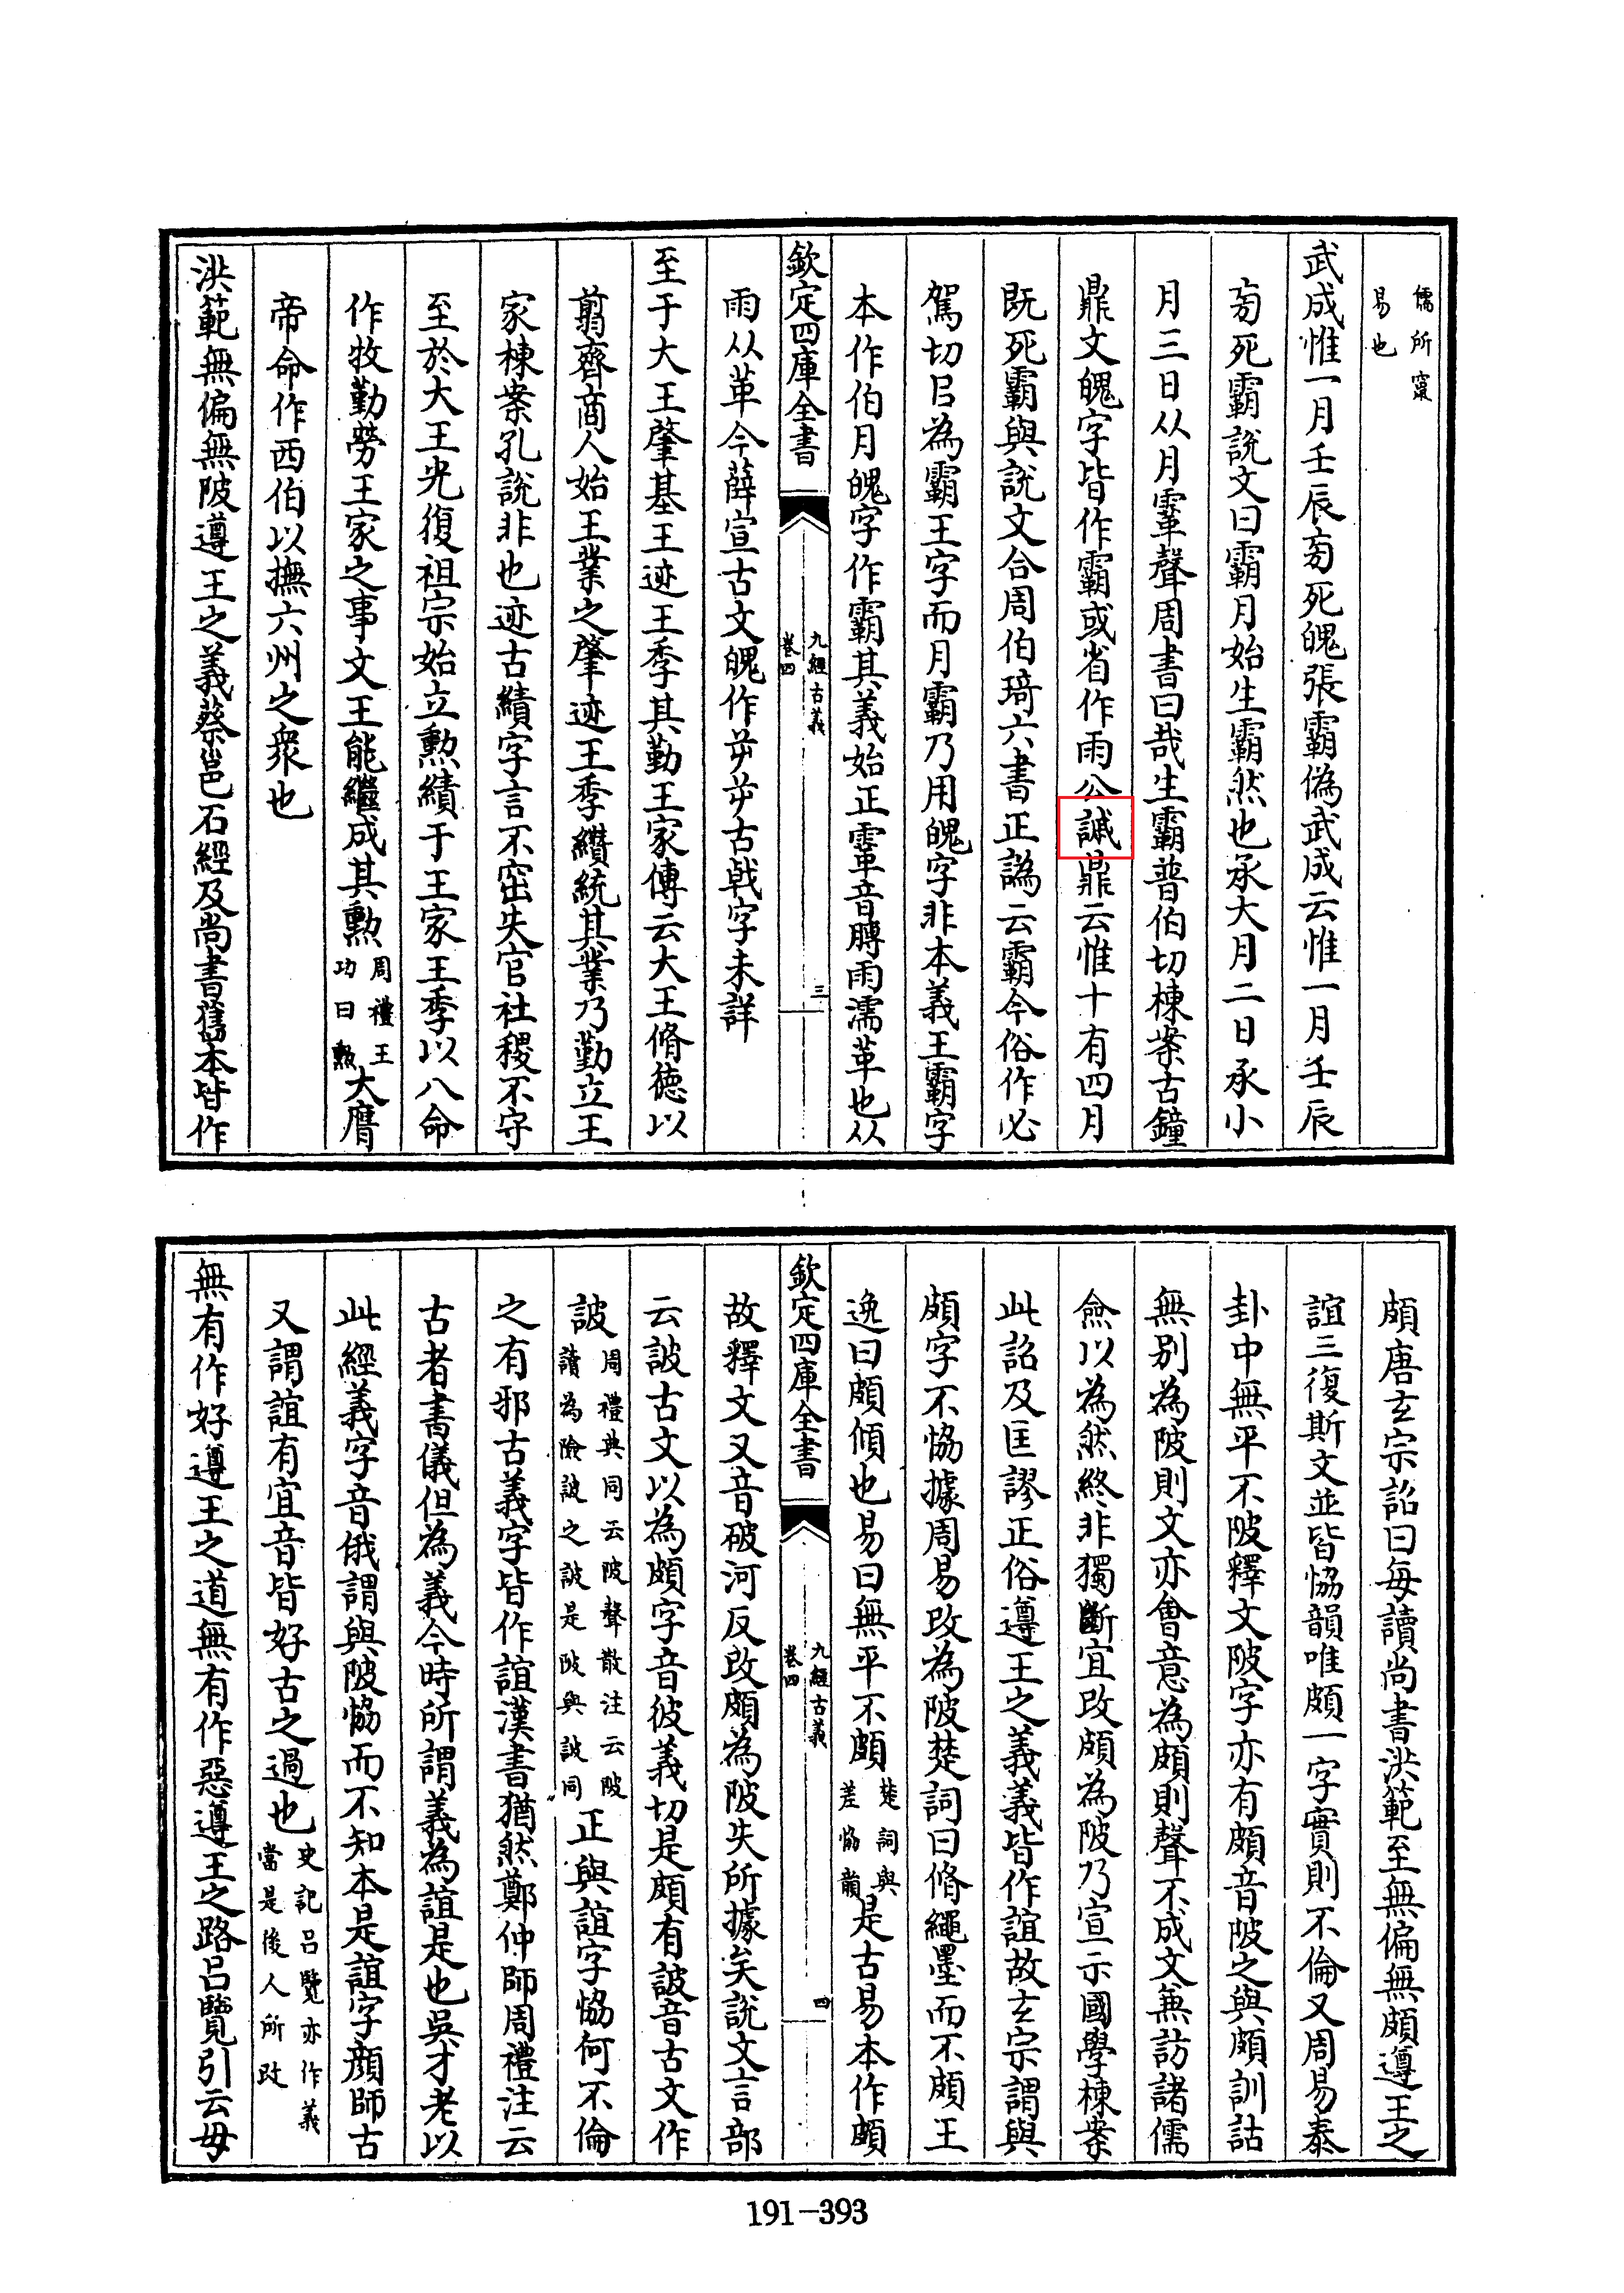 儒所竄
易也
武成惟一月壬辰㫄死魄張霸偽武成云惟一月壬辰
㫄死霸說文曰霸月始生霸然也承大月二日承小
月三日从月䨣聲周書曰哉生霸普伯切棟案古鐘
鼎文魄字皆作霸或省作雨公諴鼎云惟十有四月
既死霸與說文合周伯琦六書正譌云霸今俗作必
駕切㠯為霸王字而月霸乃用魄字非本義王霸字
本作伯月魄字作霸其義始正䨣音膊雨濡革也从
欽定四庫全書
九經古義
卷四
三
雨从革今薛宣古文魄作古戟字未詳
至于大王肇基王迹王季其勤王家傳云大王脩徳以
翦齊商人始王業之肇迹王季纘統其業乃勤立王
家棟案孔說非也迹古績字言不窋失官社稷不守
至於大王光復祖宗始立勲績于王家王季以八命
作牧勤勞王家之事文王能繼成其勲
周禮王
功曰勲
大膺
帝命作西伯以撫六州之衆也
洪範無偏無陂遵王之義蔡邕石經及尚書舊本皆作
頗唐玄宗詔曰每讀尚書洪範至無偏無頗遵王之
誼三復斯文並皆恊韻唯頗一字實則不倫又周易泰
卦中無平不陂釋文陂字亦有頗音陂之與頗訓詁
無别為陂則文亦會意為頗則聲不成文兼訪諸儒
僉以為然終非獨斷宜改頗為陂乃宣示國學棟案
此詔及匡謬正俗遵王之義義皆作誼故玄宗謂與
頗字不恊據周易改為陂楚詞曰脩繩墨而不頗王
逸曰頗傾也易曰無平不頗
楚詞與
差恊韻
是古易本作頗
欽定四庫全書
九經古義
卷四
四
故釋文又音破河反改頗為陂失所據矣說文言部
云詖古文以為頗字音彼義切是頗有詖音古文作
詖
周禮典同云陂聲散注云陂
讀為險詖之詖是陂與詖同
正與誼字恊何不倫
之有邪古義字皆作誼漢書猶然鄭仲師周禮注云
古者書儀但為義今時所謂義為誼是也吳才老以
此經義字音俄謂與陂恊而不知本是誼字顔師古
又謂誼有宜音皆好古之過也
史記吕覽亦作義
當是後人所改
無有作好遵王之道無有作惡遵王之路吕覽引云毋
191-393